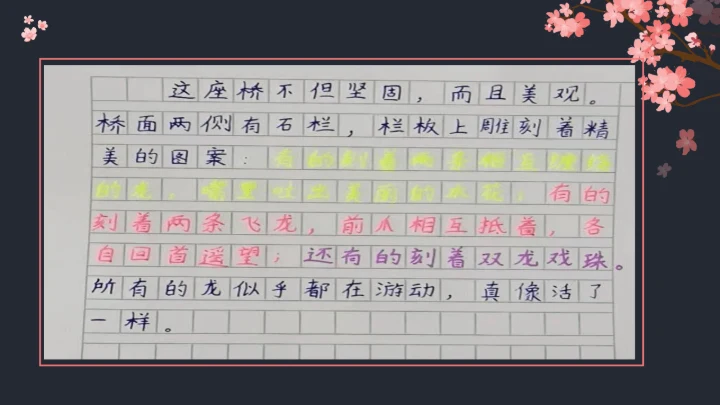 这座桥不但坚固，而且美观。
桥面两侧有石栏，栏板上雕刻着精
美的图案：有的刻着两条相互缠绕
的龙，嘴里吐出美丽的水花；有的
刻着两条飞龙，前爪相互抵着，各
自回首遥望；还有的刻着双龙戏珠。
所有的龙似乎都在游动，真像活了
一样。